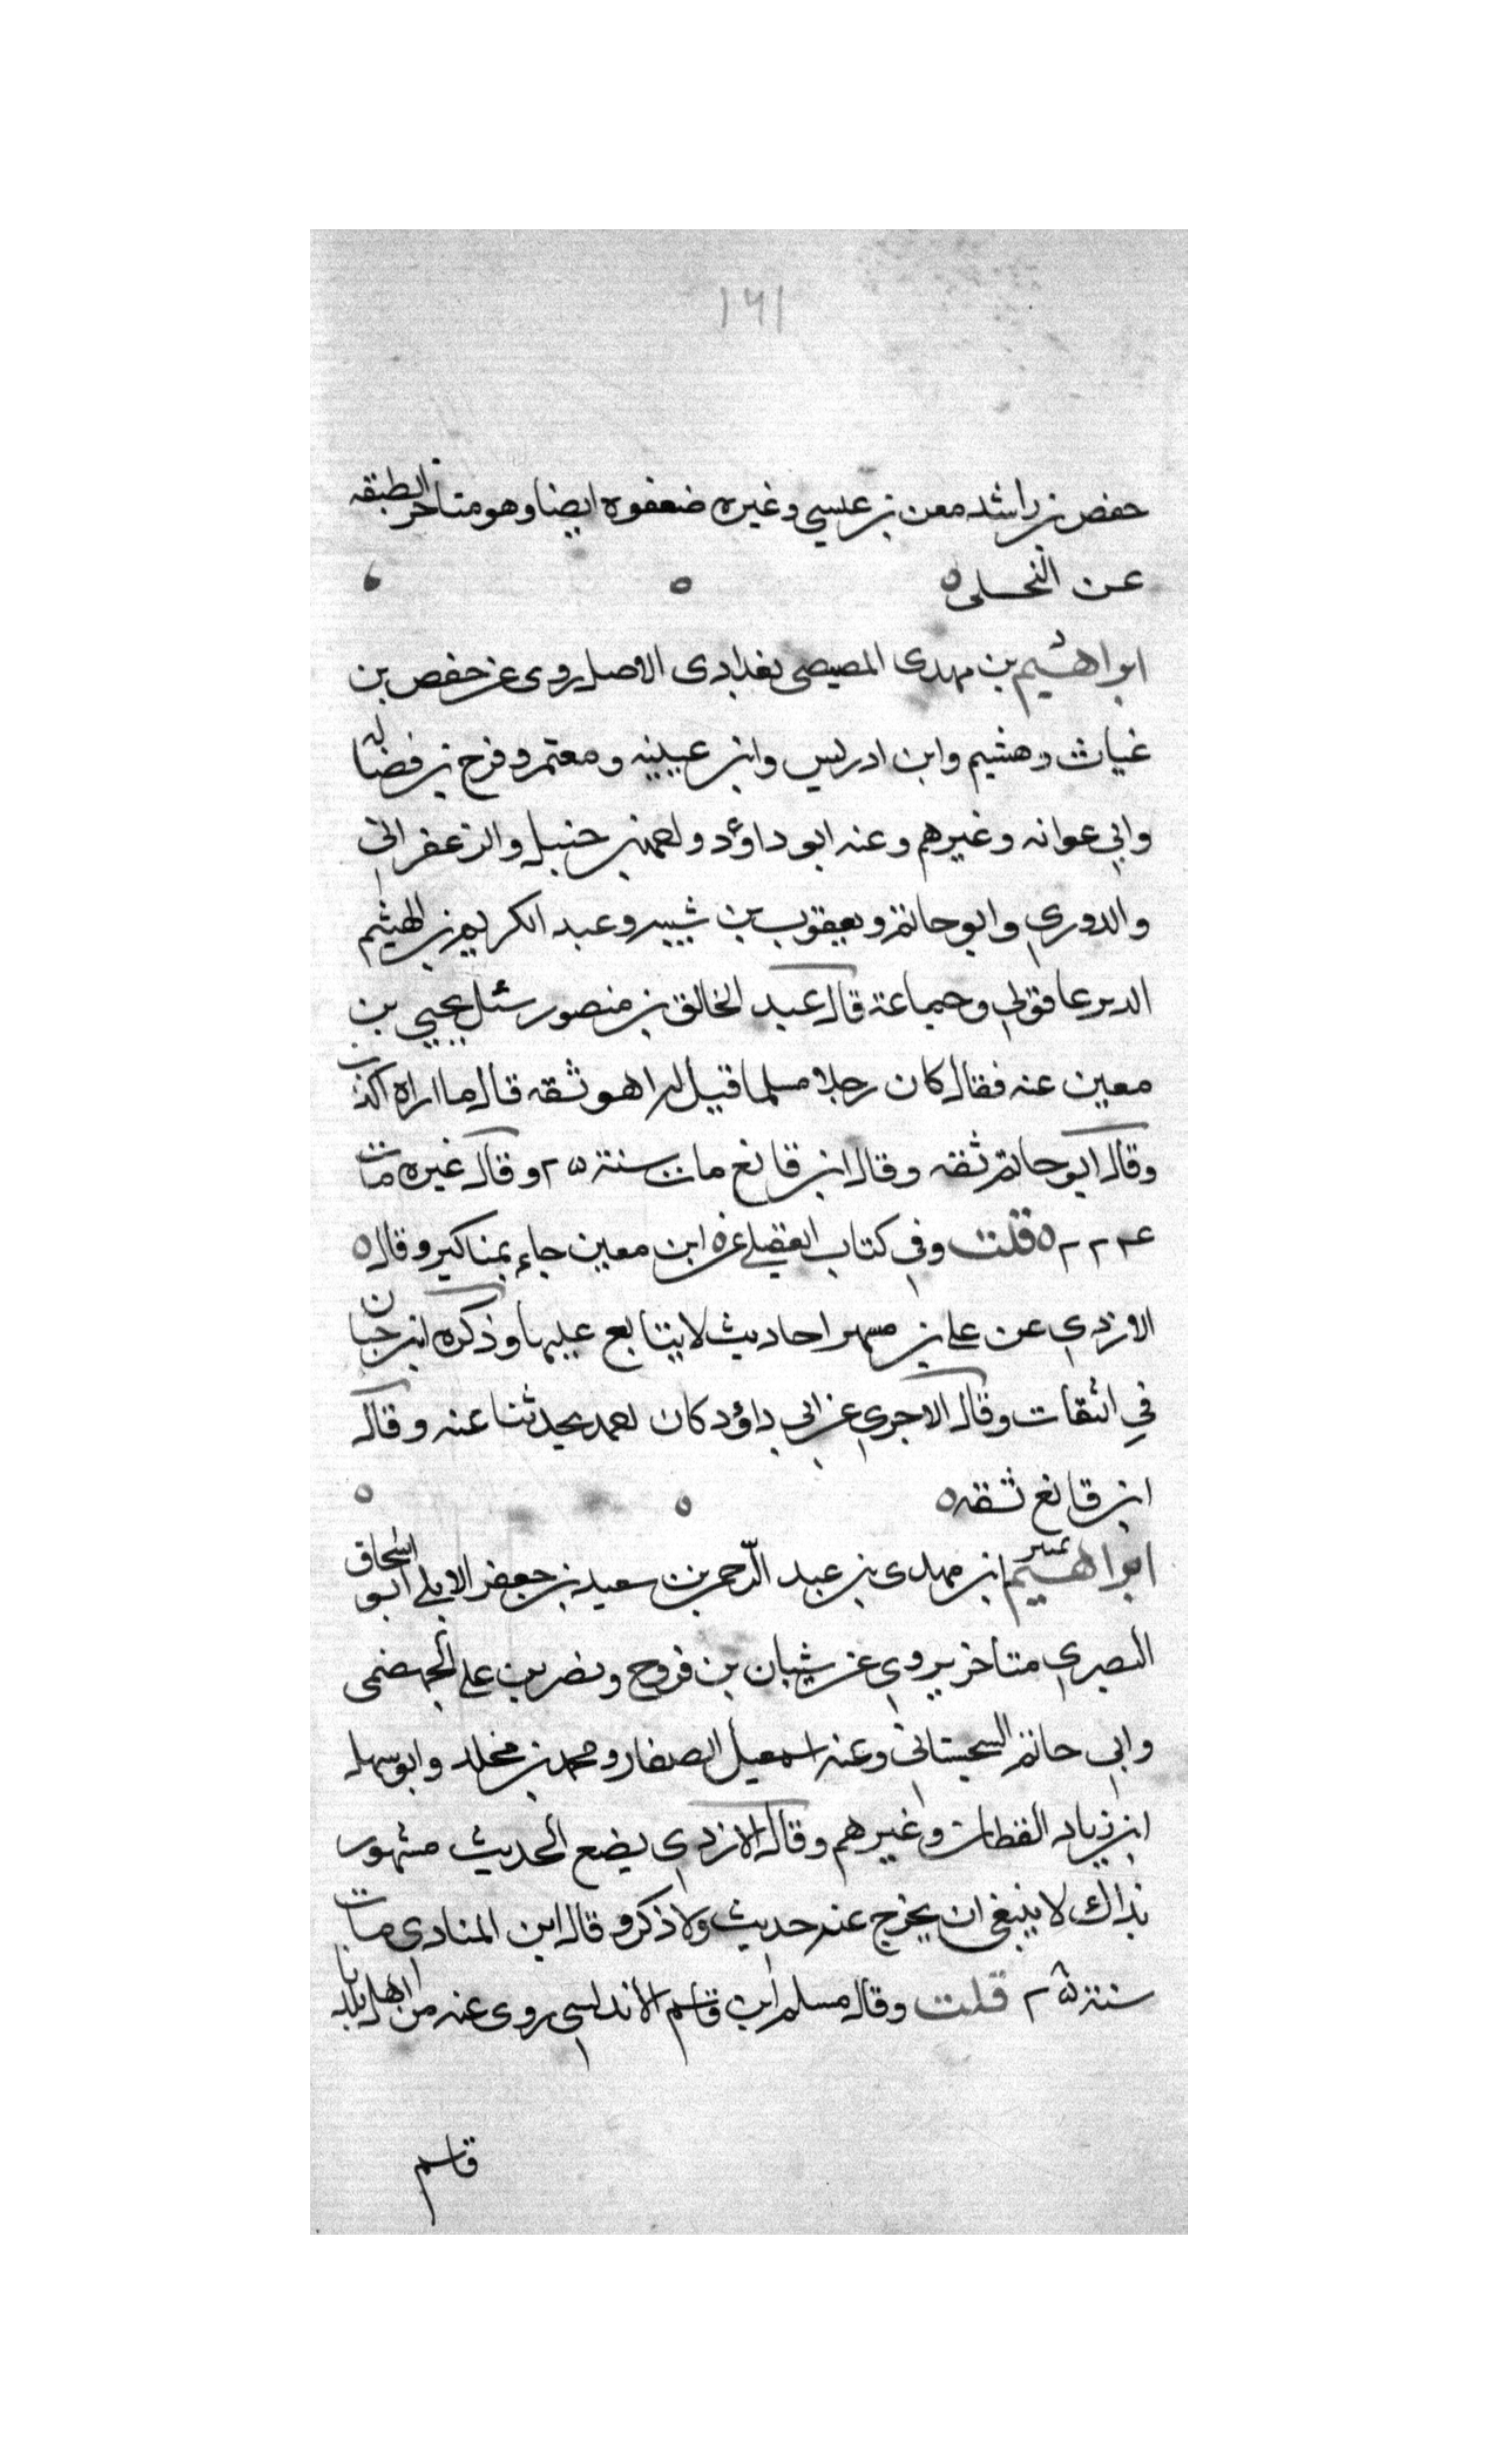 ١٦١
حفص بن راشد معن بن عيسي وغيره ضعفوه ايضا وهو متاخر الطبقه
عن النحلى ه ه ه
ابراهيم بن مهدى المصيصى بغدادى الاصل روى عن حفص بن
غياث وهشيم وابن ادريس وابن عيينه ومعتمر وفرج بن فضاله
وابي عوانه وغيرهم وعنه ابو داؤد واحمد بن حنبل والزعفراني
والدوري وابو حاتم ويعقوب بن شيبه وعبد الكريم بن الهيثم
الدير عاقولي وجماعة قال عبد الخالق بن منصور سئل يحيي بن
معين عنه فقال كان رجلا مسلما قيل له اهو ثقه قال ما اراه اكذب
وقال ابو حاتم ثقه وقال ابن قانع مات سنة ٢٥ وقال غيره مات
٢٢٤ ه قلت وفي كتاب العقيلي عن ابن معين جاء بمناكير وقال ه
الازدي عن علي بن مسهر احاديث لا يتابع عليها وذكره ابن حبان
في الثقات وقال الاجري عن ابي داؤد كان احمد يحدثنا عنه وقال
ابن قانع ثقه ه ه ه
ابراهيم ابن مهدى بن عبد الرحمن بن سعيد بن جعفر الابلي ابو اسحاق
البصري متاخر يروي عن شيبان بن فروخ ونصر بن علي الجهضمى
وابي حاتم السجستاني وعنه اسمعيل الصفار ومحمد بن مخلد وابو سهل
ابن زياد القطان وغيرهم وقال الازدي يضع الحديث مشهور
بذاك لا ينبغى ان يخرج عنه حديث ولا ذكر وقال ابن المنادي مات
سنة ٢٥ قلت وقال مسلم ابن قاسم الاندلسي روى عنه من اهل بلدنا
قاسم